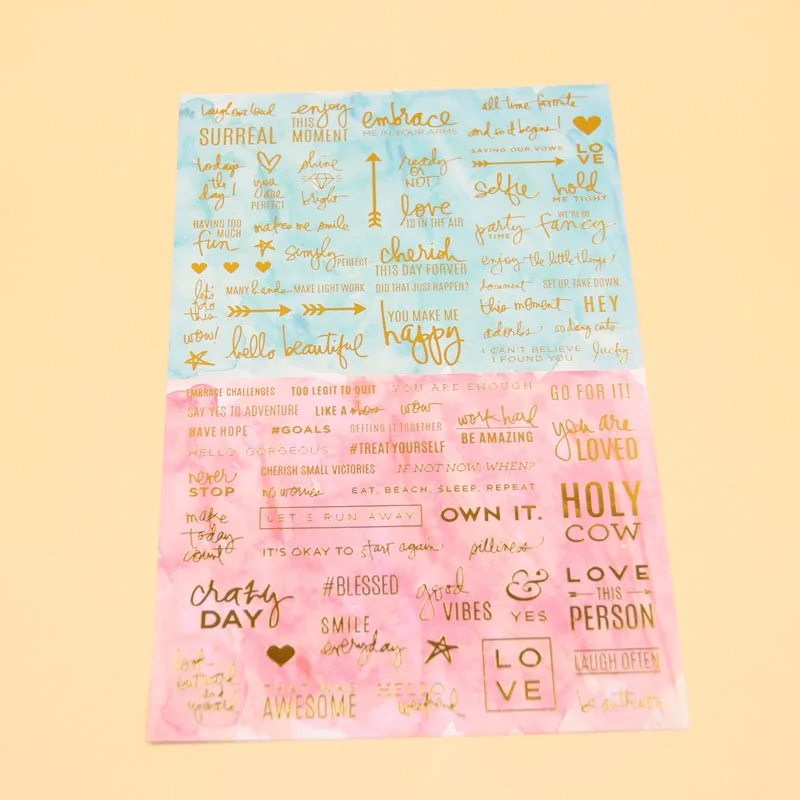 laugh out loud
SURREAL
enjoy
THIS
MOMENT
embrace
ME IN YOUR ARMS
all time favorite
and so it begins!
SAYING OUR VOWS
LO
VE
today's
the
day!
you
are
PERFECT
shine
bright
ready
OR
NOT
love
IS IN THE AIR
selfie
hold
ME TIGHT
HAVING TOO
MUCH
fun
makes me smile
simply
PERFECT
cherish
THIS DAY FORVER
party
TIME
WE'RE SO
fancy
enjoy the little things!
let's
do
this
MANY hands MAKE LIGHT WORK
DID THAT JUST HAPPEN?
document
SET UP, TAKE DOWN.
this moment
HEY
wow!
hello beautiful
YOU MAKE ME
happy
adorbs
so dang cute
I CAN'T BELIEVE
I FOUND YOU
lucky
EMBRACE CHALLENGES
TOO LEGIT TO QUIT
YOU ARE ENOUGH
GO FOR IT!
SAY YES TO ADVENTURE
LIKE A boss
wow
work hard
BE AMAZING
you are
LOVED
HAVE HOPE
#GOALS
GETTING IT TOGETHER
HELLO, GORGEOUS
#TREATYOURSELF
never
STOP
CHERISH SMALL VICTORIES
IF NOT NOW, WHEN?
no worries
EAT, BEACH, SLEEP, REPEAT
HOLY
COW
make
today
count
LET'S RUN AWAY
OWN IT.
IT'S OKAY TO start again
silliness
crazy
DAY
#BLESSED
good
VIBES
&
YES
LOVE
THIS
PERSON
SMILE
everyday
LO
VE
LAUGH OFTEN
THAT WAS
AWESOME
HELLO
weekend
be authentic